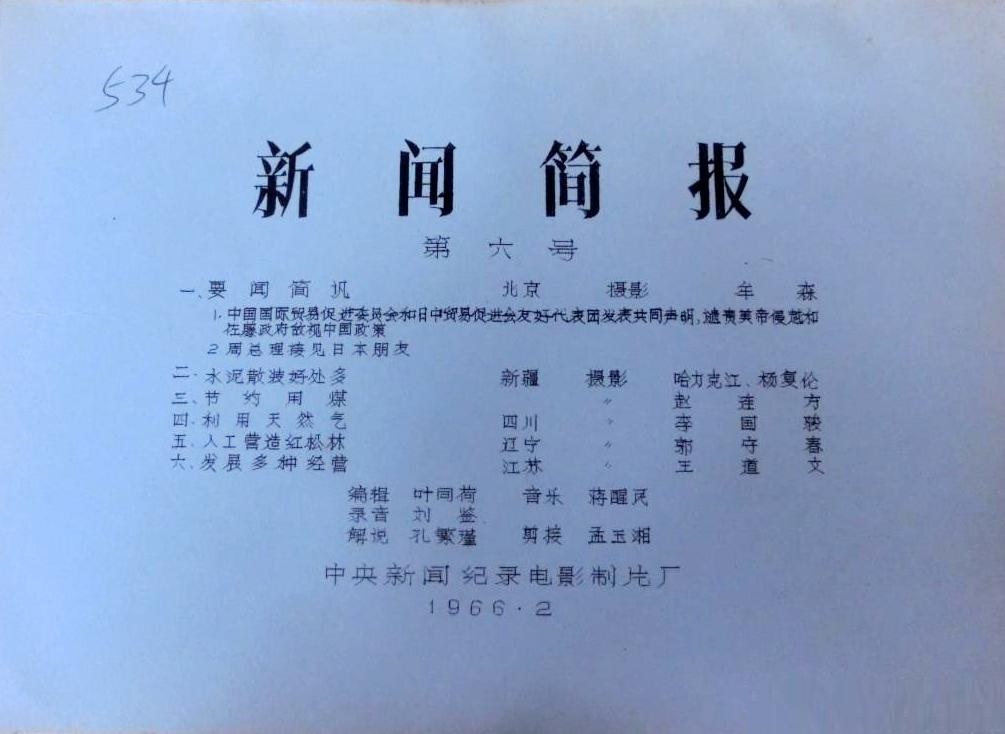 534
新闻简报
第六号
一、要闻简讯 北京 摄影 牟森
1. 中国国际贸易促进委员会和日中贸易促进会友好代表团发表共同声明,谴责美帝侵越和
佐滕政府敌视中国政策
2 周总理接见日本朋友
二、水泥散装好处多 新疆 摄影 哈力克江、杨复伦
三、节约用煤 〃 赵连方
四、利用天然气 四川 〃 李国骏
五、人工营造红松林 辽宁 〃 郭守春
六、发展多种经营 江苏 〃 王道文
编辑 叶间荷 音乐 蒋醒民
录音 刘鉴
解说 孔繁瑾 剪接 孟玉湘
中央新闻纪录电影制片厂
1966.2